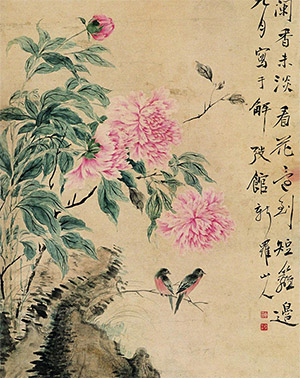 闌香未淡看花到短籬邊
九月寫于解弢館新羅山人